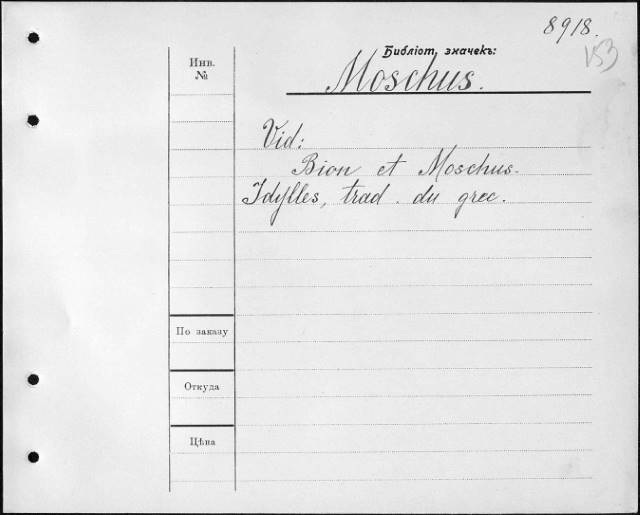 8918.
V53
Библіот. значекъ:
Moschus.
Инв.
№
Vid:
Bion et Moschus.
Idylles, trad. du grec.
По заказу
Откуда
Цѣна